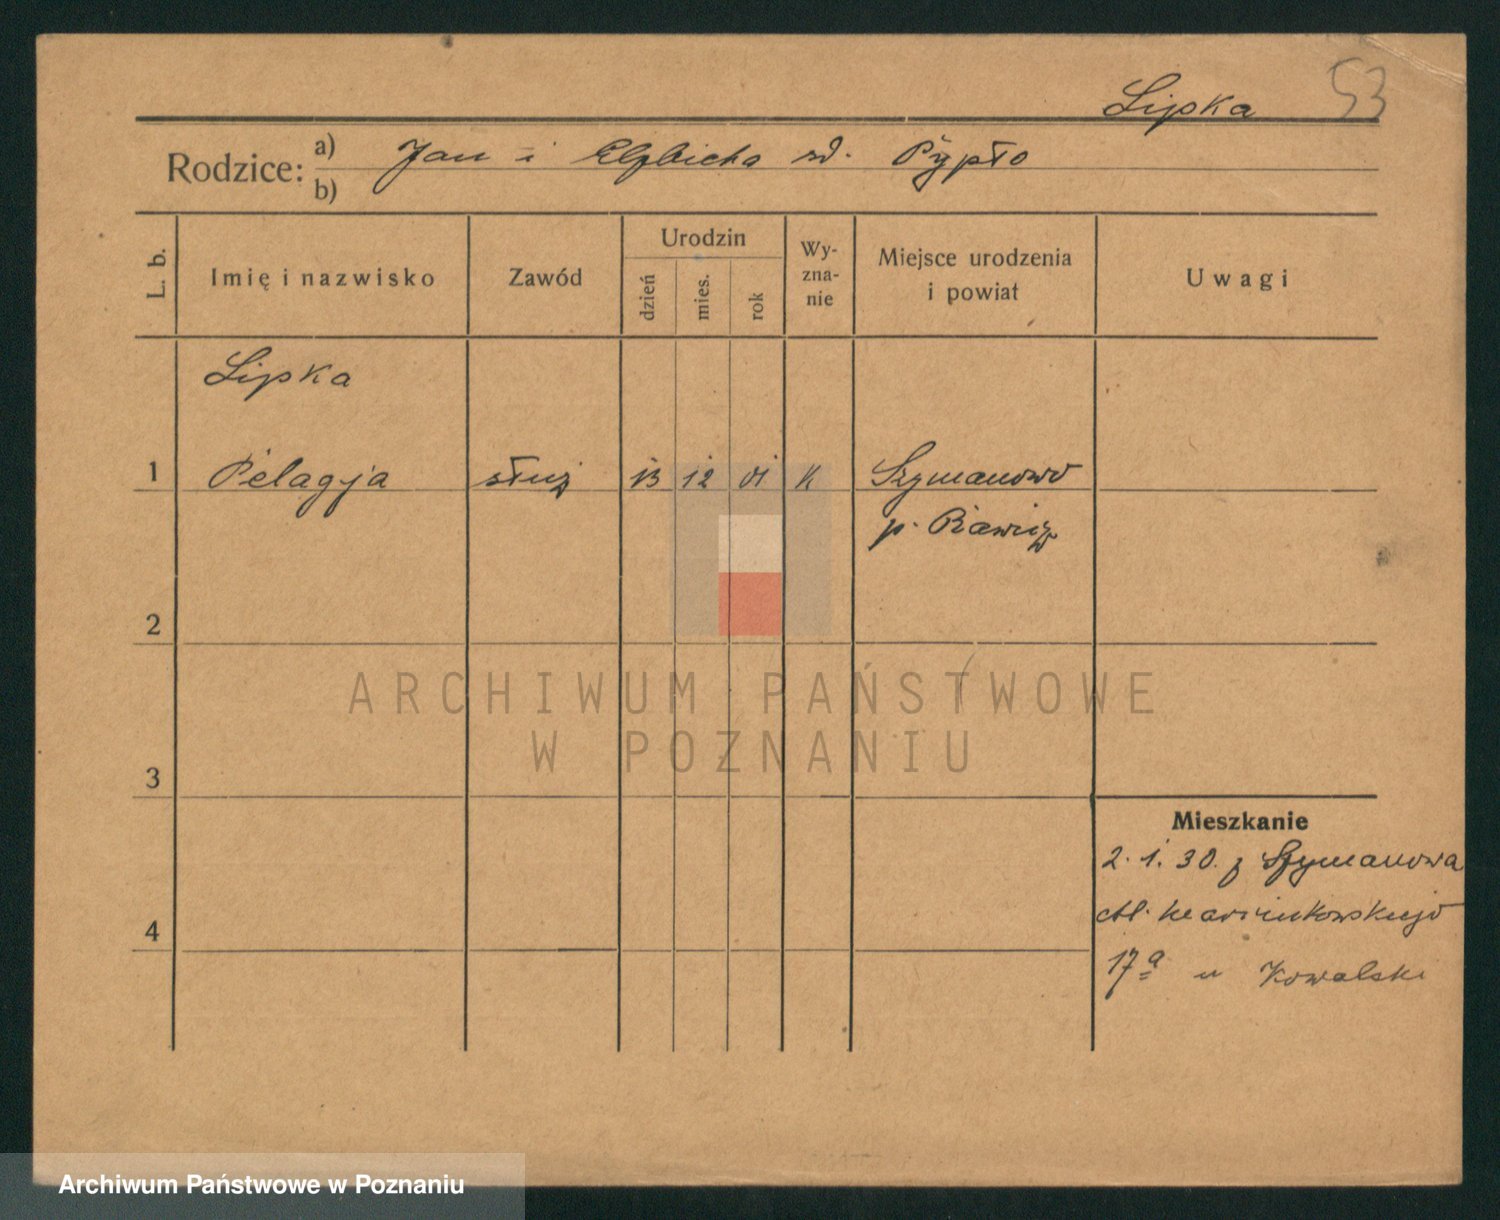 Lipka 53
Rodzice: a) Jan i Elżbieta zd. Pypło
b)
L. b. Imię i nazwisko Zawód Urodzin dzień mies. rok Wy-zna-nie Miejsce urodzenia i powiat Uwagi
Lipka
1 Pelagja służ 13 12 01 K Szymanowo
p. Rawicz
2
3
4
Mieszkanie
2. 1. 30. z Szymanowa
Al. Marcinkowskiego
17a u Kowalski
ARCHIWUM PAŃSTWOWE
W POZNANIU
Archiwum Państwowe w Poznaniu